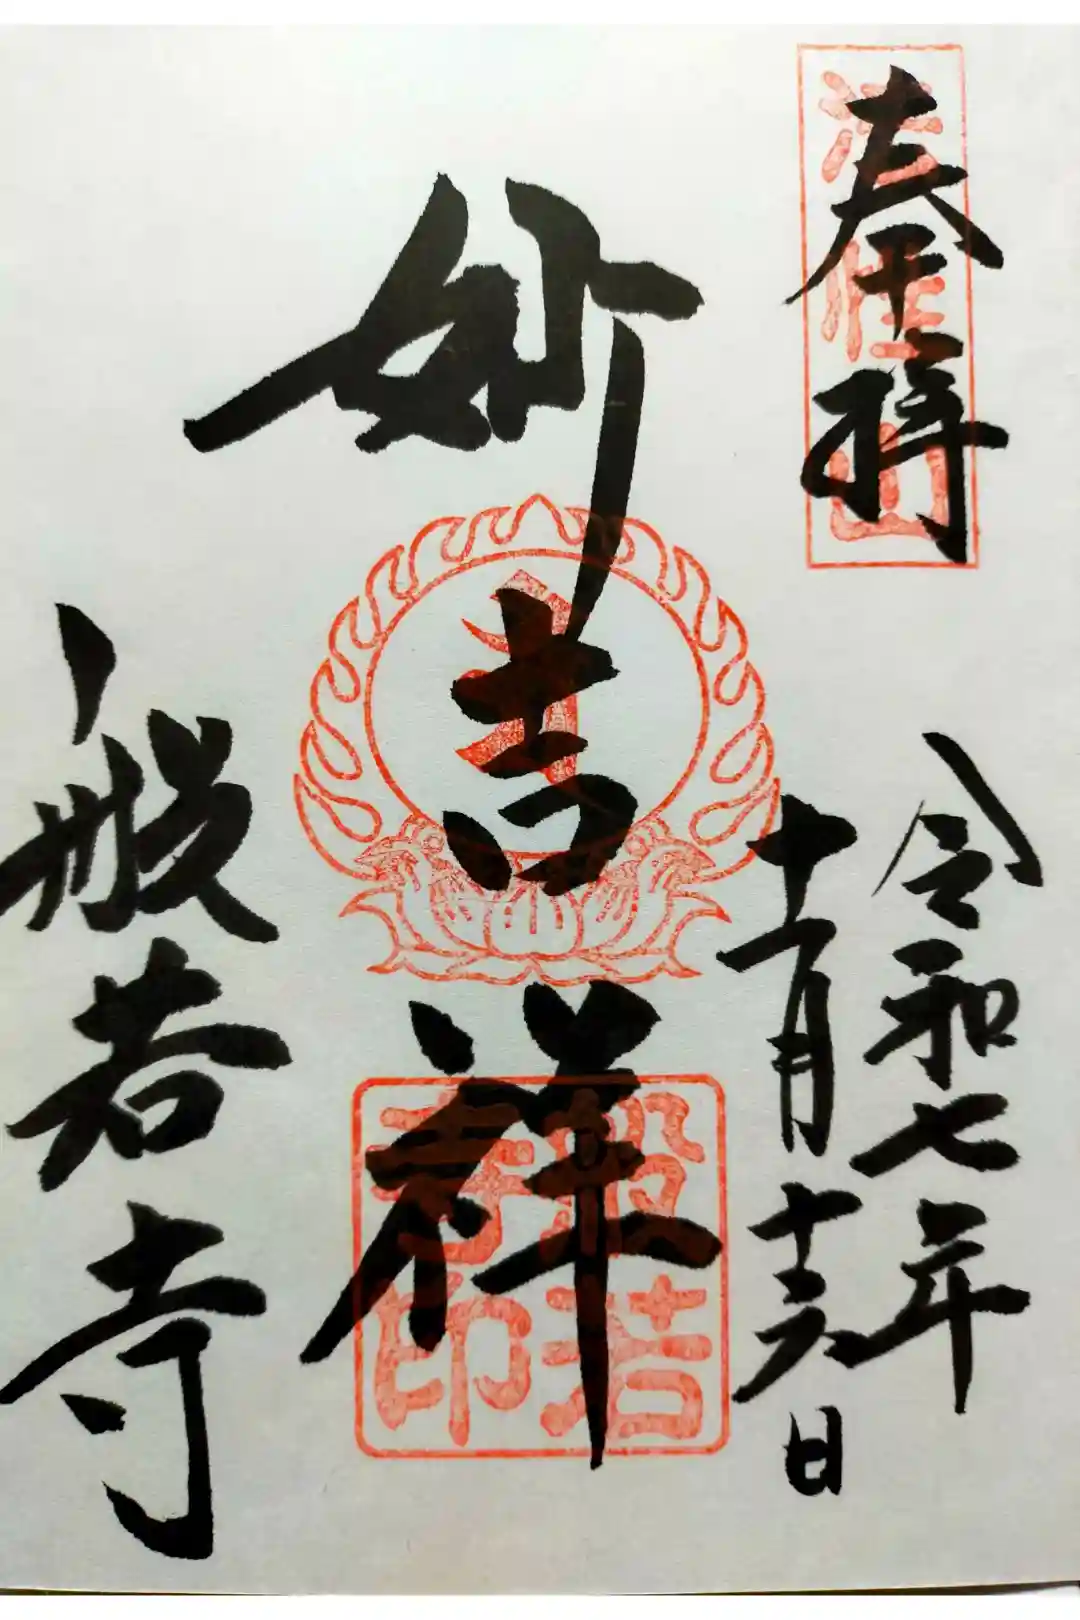 奉拝
法性山
令和七年
十一月十六日
妙吉祥
般若寺印
般若寺